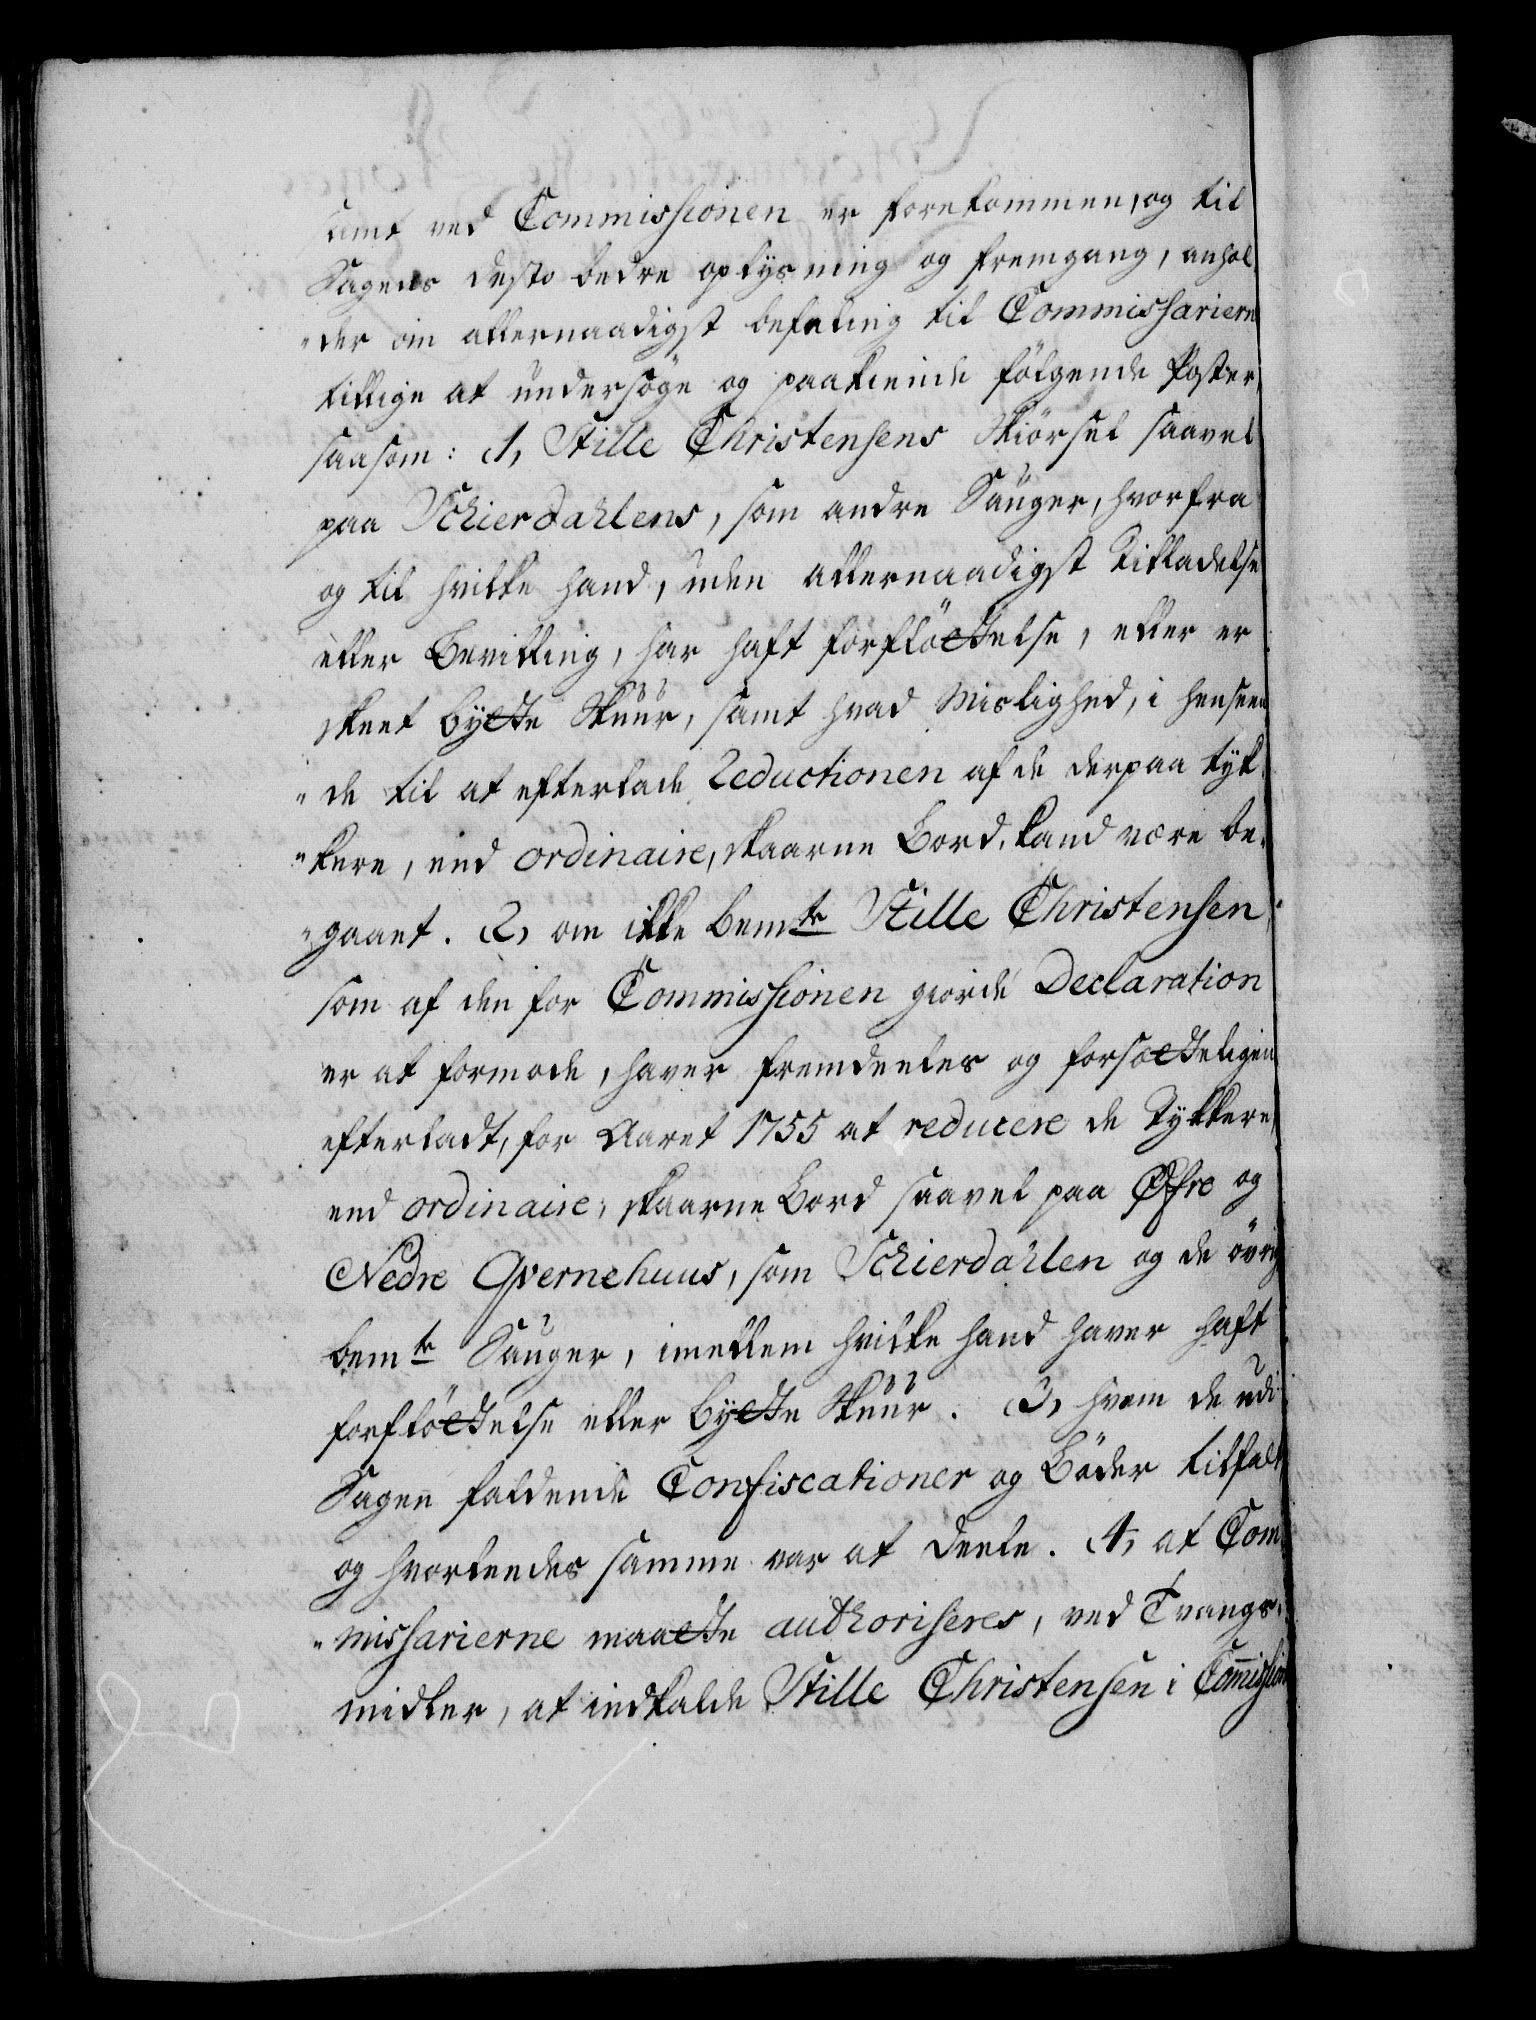 samt ved Commissionen er forekommen, og til
Sagens desto bedre oplysning og fremgang, anhol
"der om allernaadigst befaling til Commissarierne
tillige at undersøge og paakiende følgende Poster,
saasom: 1, Stille Christensens Skiørsel saavel
paa Schierdahlens, som andre Sauger, hvorfra
og til hvilke hand, uden allernaadigst Tilladelse
eller Bevilling, har haft forfløttelse, eller er
skeet bytte Skuur, samt hvad Mislighed, i henseen
"de til at efterlade Reductionen af de derpaa tyk,
"kere, end ordinaire, skaarne Bord, kand være be,
"gaaet. 2, om ikke bemte Stille Christensen,
som af den for Commissionen giorde Declaration
er at formode, haver fremdeeles og forsætteligen
efterladt, for Aaret 1755 at reducere de Tykkere
end ordinaire, skaarne Bord saavel paa Øfre og
Nedre Qvernehuus, som Schierdahlen og de øvrig
bemte Sauger, imellem hvilke hand haver haft
forfløttelse eller bytte Skuur. 3, hvem de udi
Sagen faldende Confiscationer og Bøder tilfaldt
og hvorledes samme var at deele. 4, at Com
"missarierne maatte authoriseres, ved Tvangs,
midler, at indkalde Stille Christensen i Commission